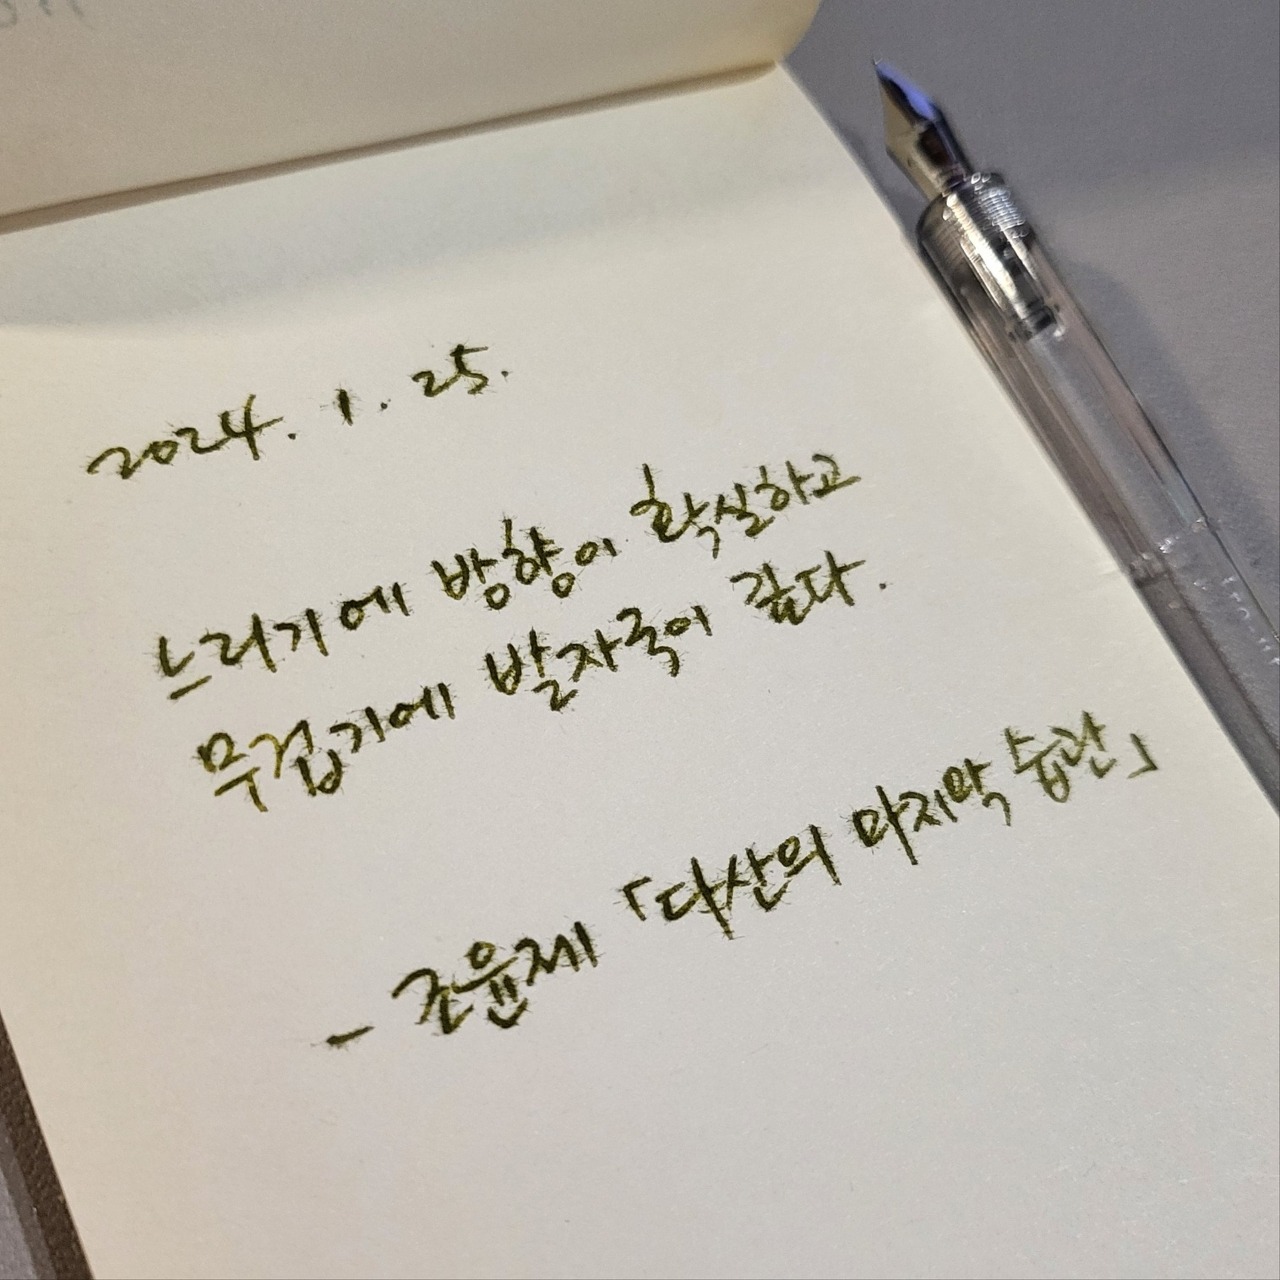 2024. 1. 25.
느리기에 방향이 확실하고
무겁기에 발자국이 깊다.
- 조윤제 「다산의 마지막 습관」